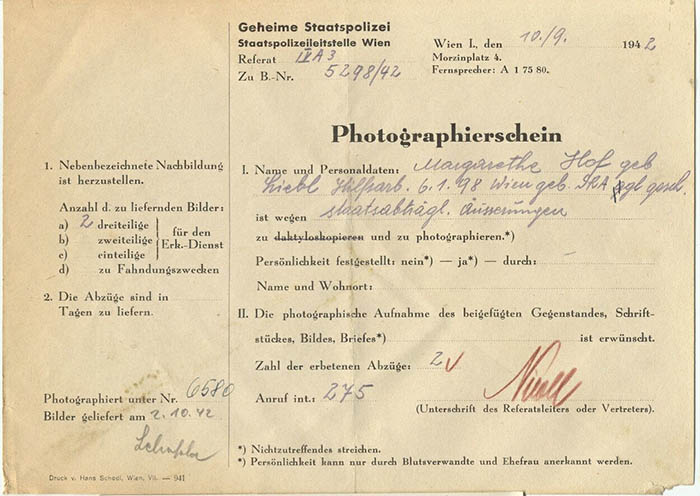 Geheime Staatspolizei
Staatspolizeileitstelle Wien
Referat IVA3
Zu B.-Nr. 5298/42
Wien I., den 10./9. 1942
Morzinplatz 4.
Fernsprecher: A 1 75 80.
Photographierschein
1. Nebenbezeichnete Nachbildung
ist herzustellen.
Anzahl d. zu liefernden Bilder:
a) 2 dreiteilige
b) zweiteilige
c) einteilige
für den
Erk.-Dienst
d) zu Fahndungszwecken
2. Die Abzüge sind in
Tagen zu liefern.
Photographiert unter Nr. 6580
Bilder geliefert am 2.10.42
I. Name und Personaldaten: Margarethe Hof geb
Liebl Hilfsarb. 6.1.98 Wien geb. DRA ggl gesch.
ist wegen staatsabträgl. Äusserungen
zu daktyloskopieren und zu photographieren.*)
Persönlichkeit festgestellt: nein*) — ja*) — durch: —
Name und Wohnort:
II. Die photographische Aufnahme des beigefügten Gegenstandes, Schrift-
stückes, Bildes, Briefes*) ist erwünscht.
Zahl der erbetenen Abzüge: 2
Anruf int.: 275
(Unterschrift des Referatsleiters oder Vertreters).
*) Nichtzutreffendes streichen.
*) Persönlichkeit kann nur durch Blutsverwandte und Ehefrau anerkannt werden.
Druck v. Hans Schedl, Wien, VII. — 941